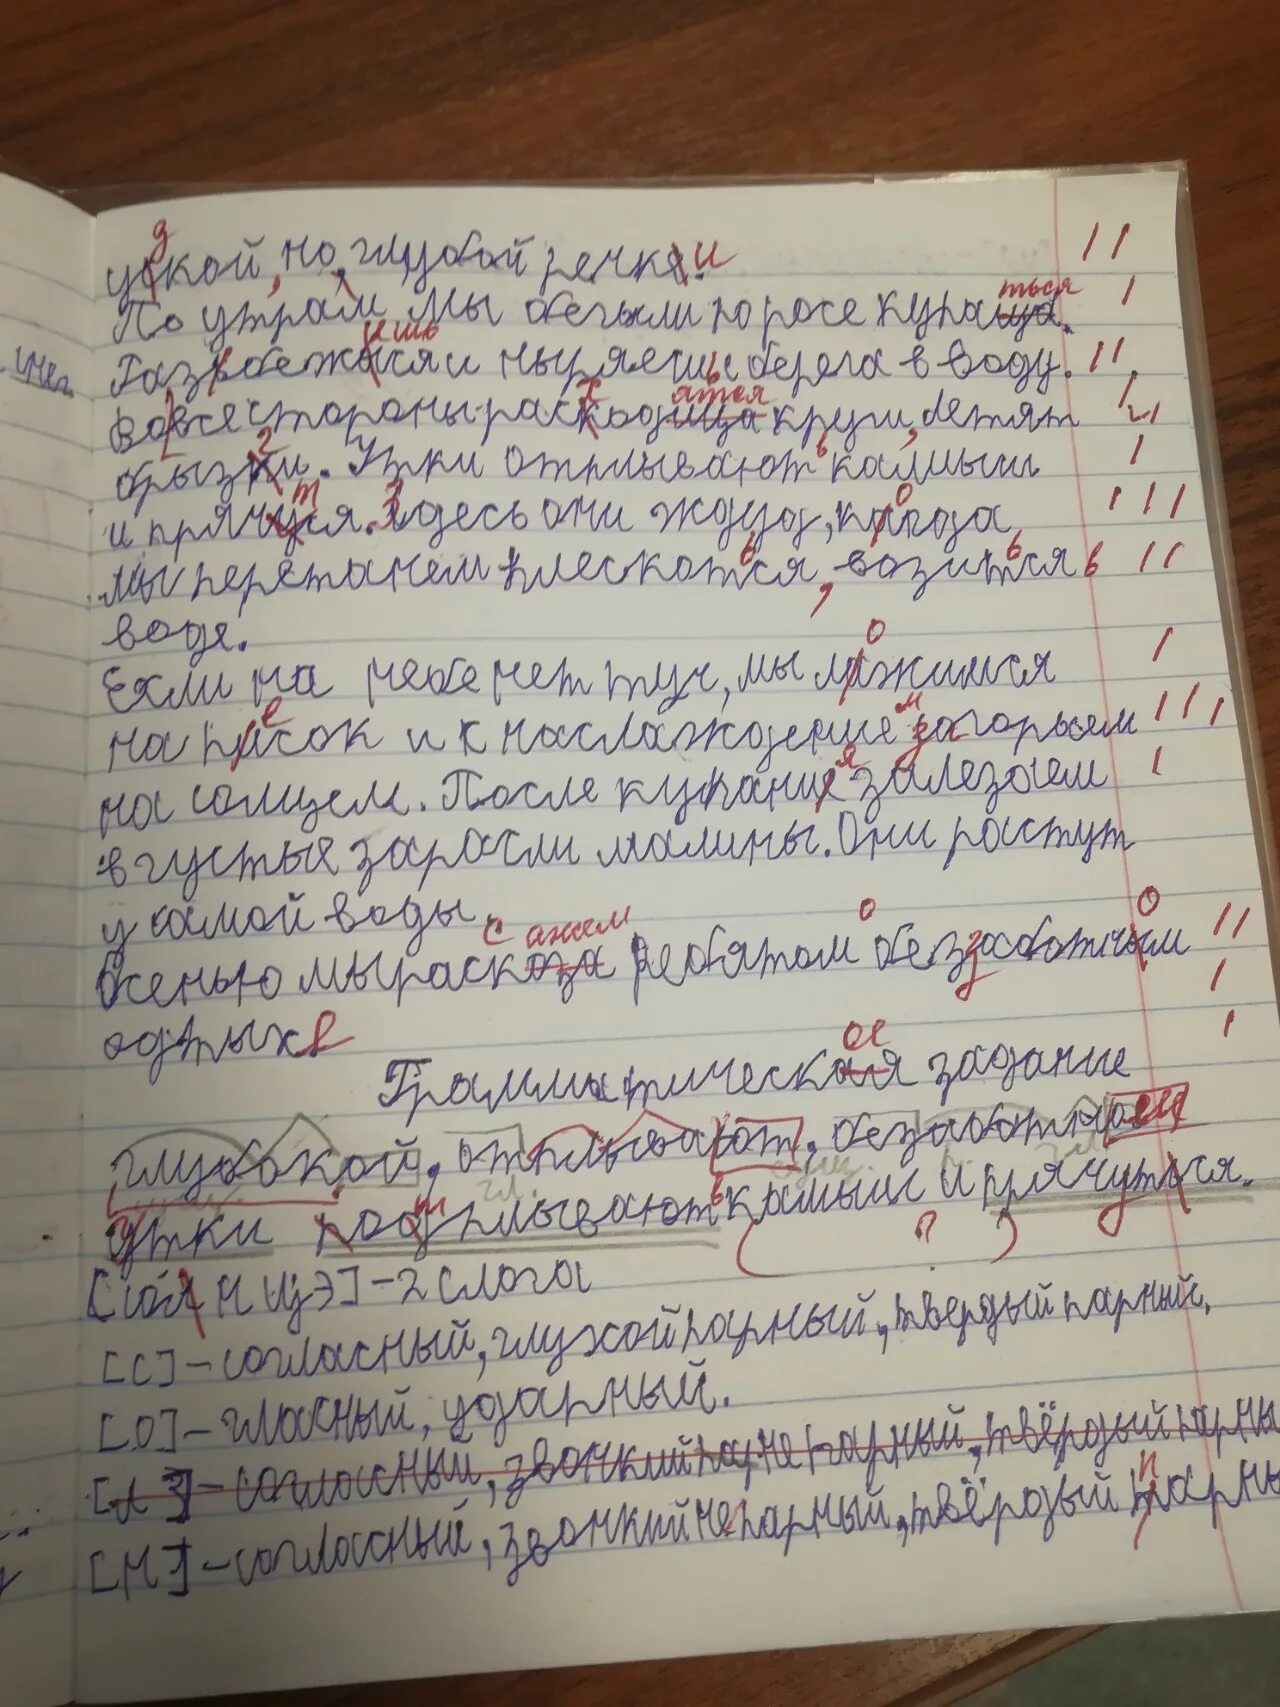 уской, но, глубокой речке. и
По утрам мы бегали по росе купаца. ться
Разбежася и ныряеш с берега в воду.
Вовсе стороны раскодица круги, летят
брызки. Утки отплывают камыши
и прячуся. Здесь они ждут, когда
мы перетанем плескотся, возится в
воде.
Если на небе нет туч, мы лажимся
на писок и к наслаждение загорьем
на солцем. После купание залезаем
в густые заросли малины. Они растут
у самой воды.
Осенью мы расказа ребятам о беззаботным
одтыхе
Грамматическая задание
глубокой, отплывают, беззаботном
утки подплывают в камыши и прячутся.
[солнцэ] - 2 слога
[с] - согласный, глухой парный, твердый парный.
[о] - гласный, ударный.
[л] - согласный, звонкий непарный, твёрдый парны
[н] - согласный, звонкий непарный, твёрдый парны